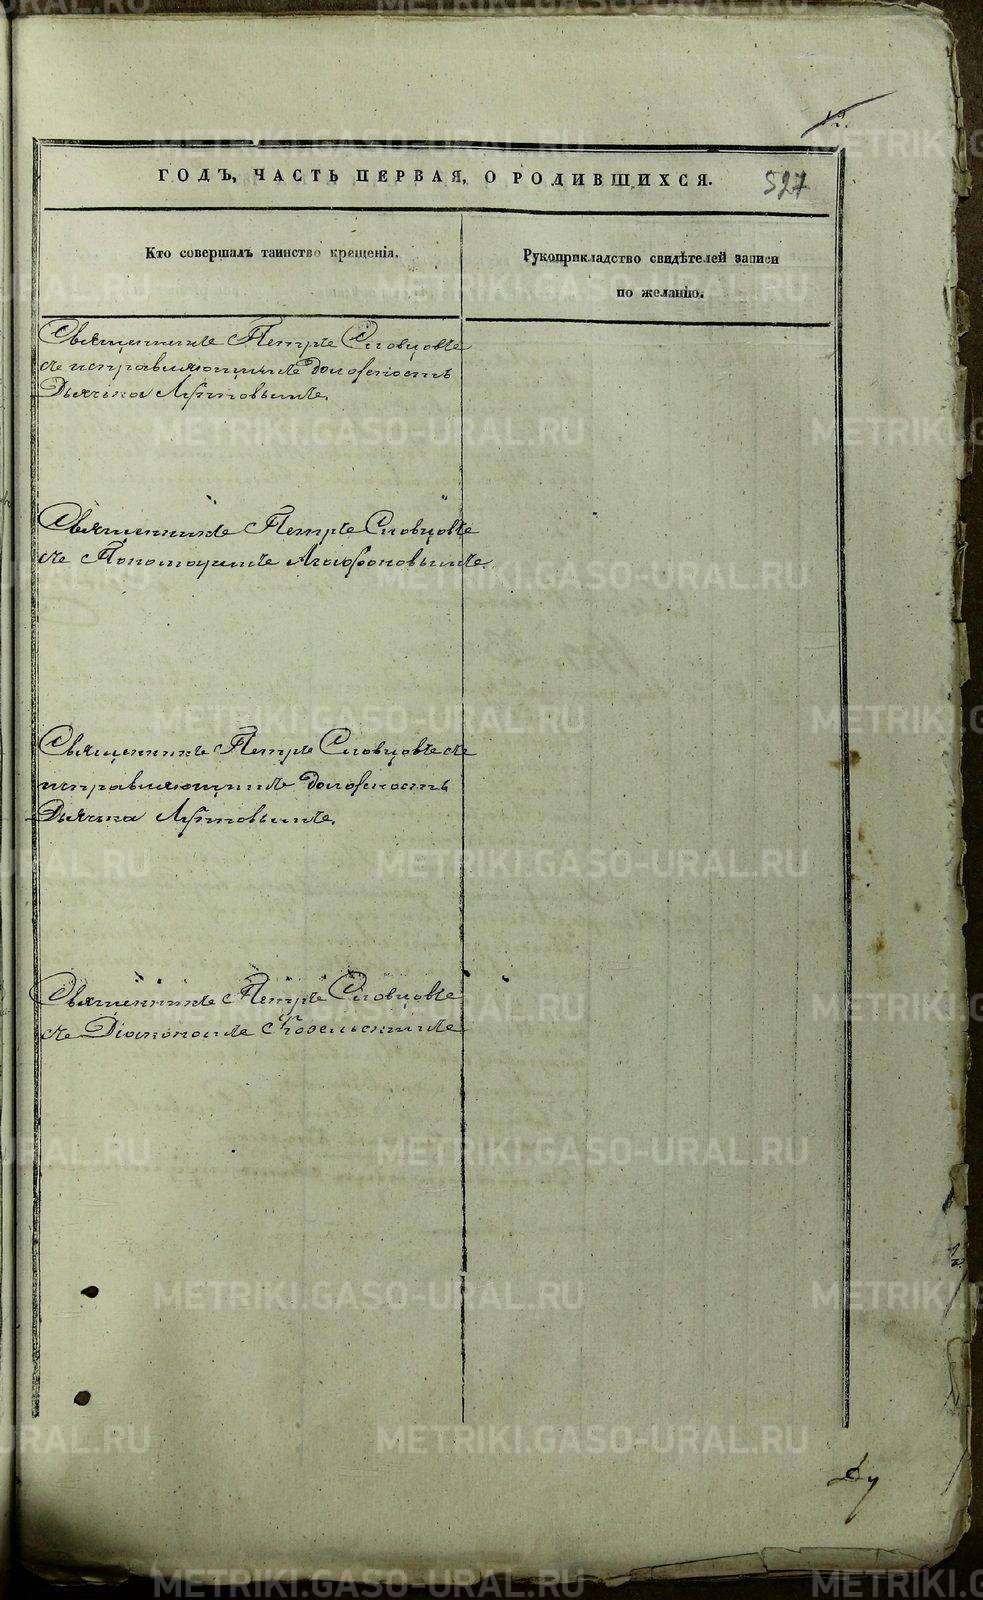 12.
ГОДЪ, ЧАСТЬ ПЕРВАЯ, О РОДИВШИХСЯ.
527
Кто совершалъ таинство крещенія.
Рукоприкладство свидѣтелей записи
по желанію.
Священникъ Петръ Словцовъ
съ исправляющимъ должность
Дьячка
Священникъ Петръ Словцовъ
съ Пономаремъ Агафоновымъ.
Священникъ Петръ Словцовъ съ
исправляющимъ должность
Дьячка
Священникъ Петръ Словцовъ
съ Діакономъ
METRIKI.GASO-URAL.RU